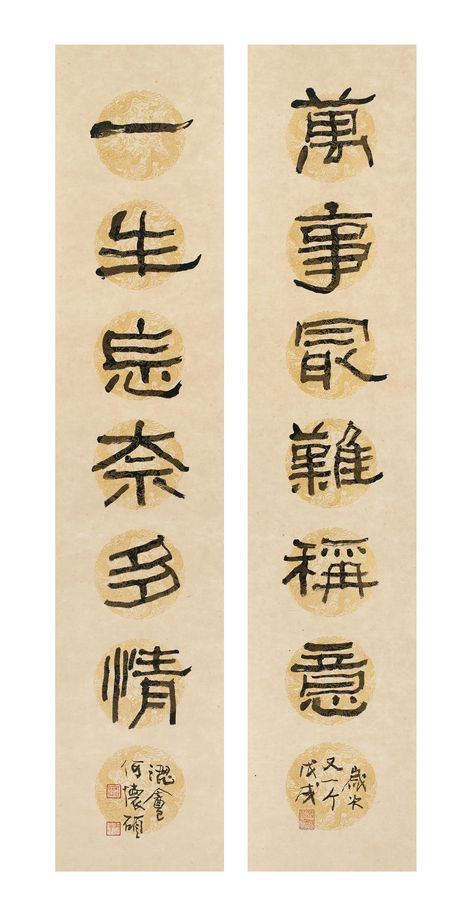 萬事最難稱意
歲次
又一个
戊戌
一生怎奈多情
澀盦
何懷碩